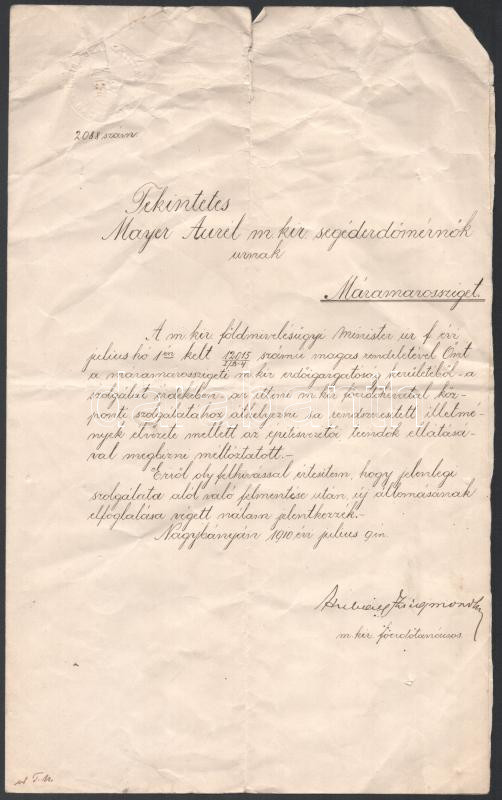 2088 szám.
Tekintetes
Mayer Aurél m. kir. segéderdőmérnök
urnak
Máramarossziget.
A m. kir. földmivelésügyi Minister ur f. évi
julius hó 1én kelt 12015 számú magas rendeletével Önt
a máramarosszigeti m. kir. erdőigazgatóság kerületéből - a
szolgálat érdekében - az itteni m. kir. főerdőhivatal köz-
ponti szolgálatához áthelyezni s a rendszeresített illetmé-
nyek élvezete mellett az épitésvezetői teendők ellátásá-
val megbizni méltóztatott. -
Erről oly felhivással értesitem, hogy jelenlegi
szolgálata alól való felmentése után, új állomásának
elfoglalása végett nálam jelentkezzék. -
Nagybányán 1910 évi julius 9 én.
m. kir. főerdőtanácsos.